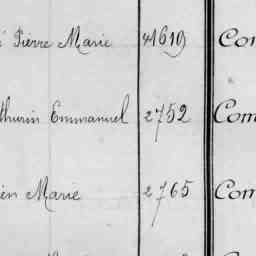 Pierre Marie 1619 Con
thurin Emmanuel 2752 Com
ien Marie 2765 Com